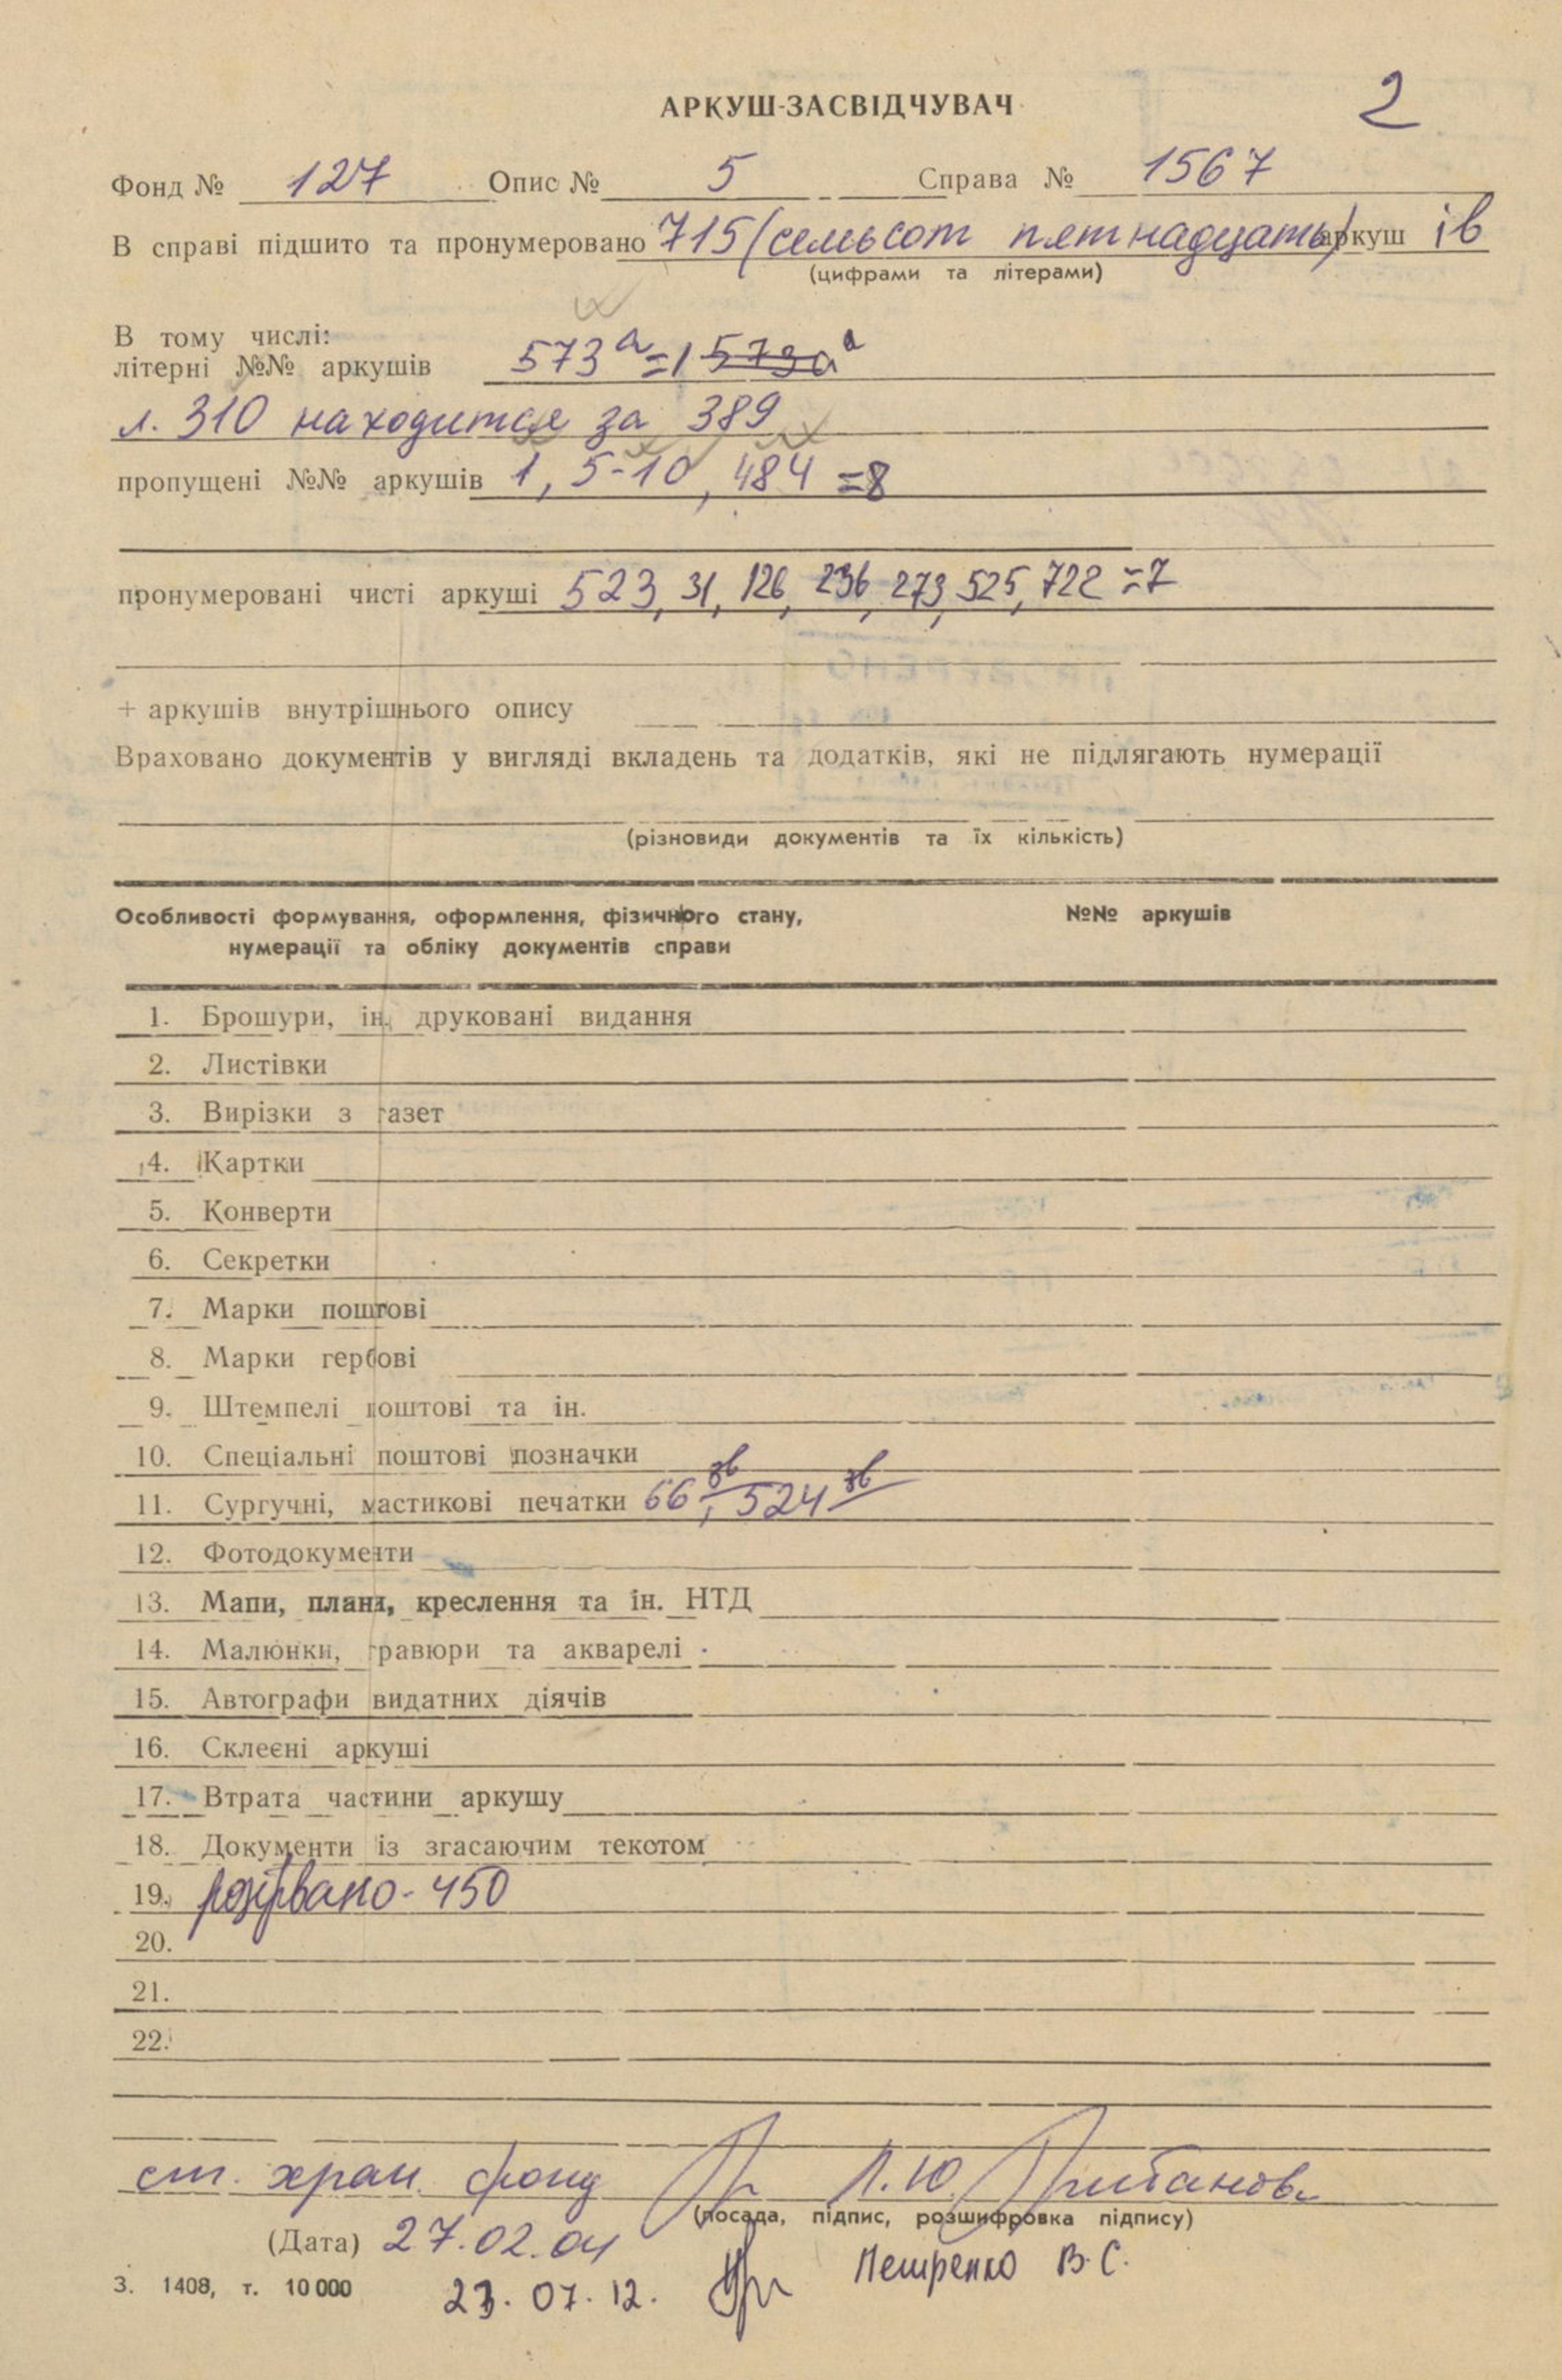 АРКУШ-ЗАСВІДЧУВАЧ
2
Фонд № 127 Опис № 5 Справа № 1567
В справі підшито та пронумеровано 715 (семьсот пятнадцать) аркуш ів
(цифрами та літерами)
В тому числі:
літерні №№ аркушів 573а=1 573а
л. 310 находится за 389
пропущені №№ аркушів 1, 5-10, 484 =8
пронумеровані чисті аркуші 523, 31, 126, 236, 273, 525, 722 =7
+ аркушів внутрішнього опису
Враховано документів у вигляді вкладень та додатків, які не підлягають нумерації
(різновиди документів та їх кількість)
Особливості формування, оформлення, фізичного стану, №№ аркушів
нумерації та обліку документів справи
1. Брошури, ін. друковані видання
2. Листівки
3. Вирізки з газет
4. Картки
5. Конверти
6. Секретки
7. Марки поштові
8. Марки гербові
9. Штемпелі поштові та ін.
10. Спеціальні поштові позначки
11. Сургучні, мастикові печатки 66 зв, 524 зв
12. Фотодокументи
13. Мапи, плани, креслення та ін. НТД
14. Малюнки, гравюри та акварелі
15. Автографи видатних діячів
16. Склеєні аркуші
17. Втрата частини аркушу
18. Документи із згасаючим текстом
19. розірвано - 450
20.
21.
22.
ст. хран. фонд Л.Ю.
(посада, підпис, розшифровка підпису)
(Дата) 27.02.04
З. 1408, т. 10 000 23. 07. 12. Петренко В.С.